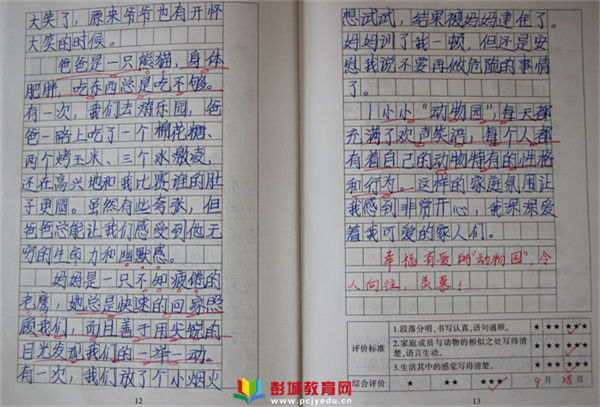 大笑了，原来爷爷也有开怀
大笑的时候。
爸爸是一只熊猫，身体
肥胖，吃东西总是吃不够。
有一次，我们去游乐园，爸
爸一路上吃了一个棉花糖、
两个烤玉米、三个冰激凌，
还在高兴地和我比赛谁的肚
子更圆。虽然有些夸张，但
爸爸总能让我们感受到他无
穷的生命力和幽默感。
妈妈是一只不知疲倦的
老鹰，她总是快速的回家照
顾我们，而且善于用尖锐的
目光发现我们的一举一动。
有一次，我们放了个小烟火
12
想试试，结果被妈妈逮住了。
妈妈训了我一顿，但还是安
慰我说不要再做危险的事情
了。
小小“动物园”，每天都
充满了欢声笑语，每个人都
有着自己的动物特有的性格
和行为。这样的家庭氛围让
我感到非常开心，我深深爱
着我可爱的家人们。
幸福有爱的“动物园”，令
人向往，羡慕！
评价标准
1.段落分明，书写认真，语句通顺。 ★ ★★ ★★★
2.家庭成员与动物的相似之处写得清
楚，语言生动。 ★ ★★ ★★★
3.生活其中的感觉写得清楚。 ★ ★★ ★★★
综合评价 ★ ★★ ★★★ 9月28日
13
彭城教育网
www.pcjyedu.cn